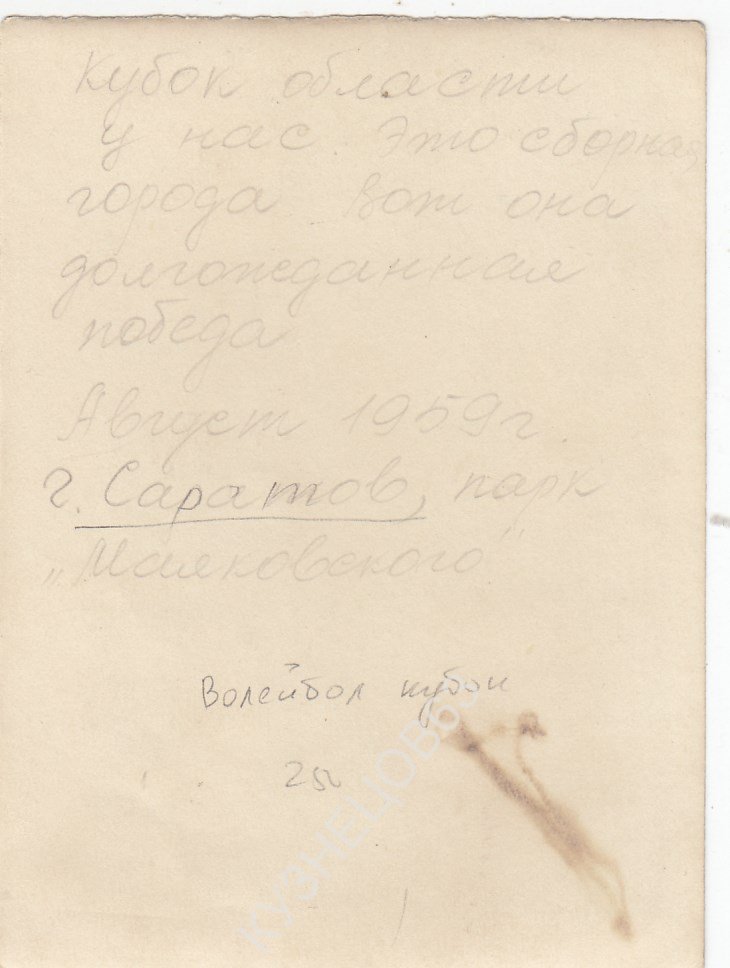 Кубок области
у нас. Это сборная
города Вот она
долгожданная
победа
Август 1959 г.
г. Саратов, парк
„Маяковского"
Волейбол кубок
250
КУЗНЕЦОВ63